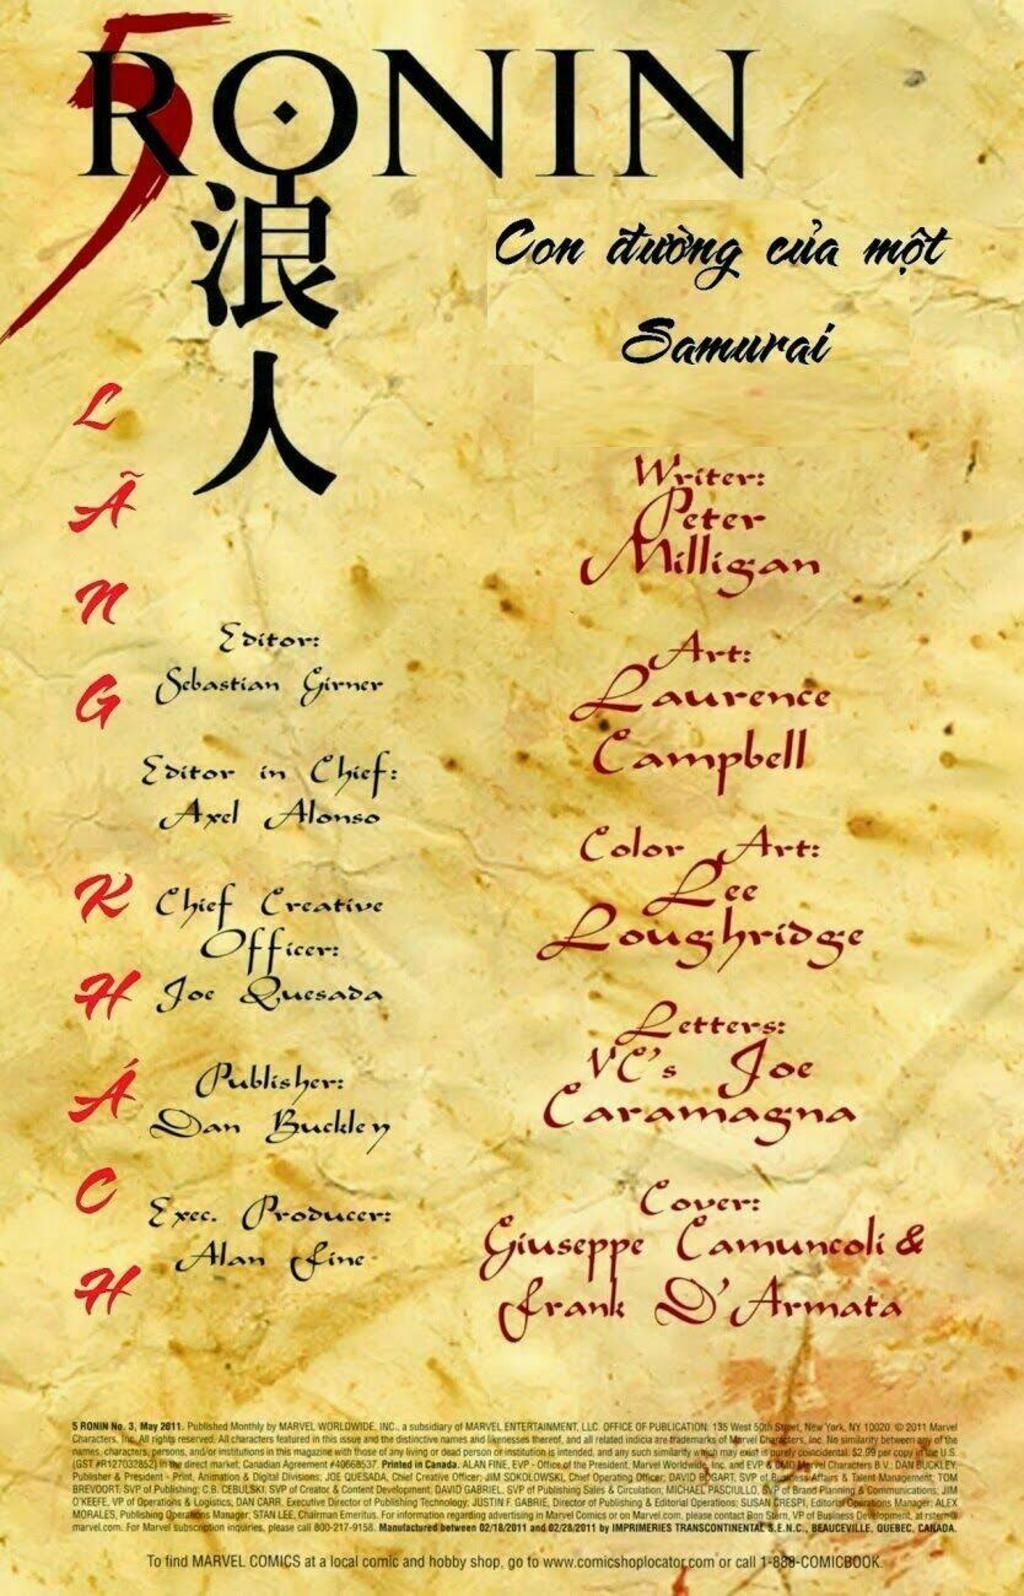 5 RONIN
浪人
Con đường của một
Samurai
LÃNG KHÁCH
Writer:
Peter
Milligan
Art:
Laurence
Campbell
Color Art:
Lee
Loughridge
Letters:
VC's Joe
Caramagna
Cover:
Giuseppe Camuncoli &
Frank D'Armata
Editor:
Sebastian Girner
Editor in Chief:
Axel Alonso
Chief Creative
Officer:
Joe Quesada
Publisher:
Dan Buckley
Exec. Producer:
Alan Fine
5 RONIN No. 3, May 2011. Published Monthly by MARVEL WORLDWIDE, INC., a subsidiary of MARVEL ENTERTAINMENT, LLC. OFFICE OF PUBLICATION: 135 West 50th Street, New York, NY 10020. © 2011 Marvel
Characters, Inc. All rights reserved. All characters featured in this issue and the distinctive names and likenesses thereof, and all related indicia are trademarks of Marvel Characters, Inc. No similarity between any of the
names, characters, persons, and/or institutions in this magazine with those of any living or dead person or institution is intended, and any such similarity which may exist is purely coincidental. $2.99 per copy in the U.S.
(GST #R127032852) in the direct market; Canadian Agreement #40668537. Printed in Canada. ALAN FINE, EVP - Office of the President, Marvel Worldwide, Inc. and EVP & CMO Marvel Characters B.V.; DAN BUCKLEY,
Publisher & President - Print, Animation & Digital Divisions; JOE QUESADA, Chief Creative Officer; JIM SOKOLOWSKI, Chief Operating Officer; DAVID BOGART, SVP of Business Affairs & Talent Management; TOM
BREVOORT, SVP of Publishing; C.B. CEBULSKI, SVP of Creator & Content Development; DAVID GABRIEL, SVP of Publishing Sales & Circulation; MICHAEL PASCIULLO, SVP of Brand Planning & Communications; JIM
O'KEEFE, VP of Operations & Logistics; DAN CARR, Executive Director of Publishing Technology; JUSTIN F. GABRIE, Director of Publishing & Editorial Operations; SUSAN CRESPI, Editorial Operations Manager; ALEX
MORALES, Publishing Operations Manager; STAN LEE, Chairman Emeritus. For information regarding advertising in Marvel Comics or on Marvel.com, please contact Ron Stern, VP of Business Development, at rstern@
marvel.com. For Marvel subscription inquiries, please call 800-217-9158. Manufactured between 02/18/2011 and 02/28/2011 by IMPRIMERIES TRANSCONTINENTAL S.E.N.C., BEAUCEVILLE, QUEBEC, CANADA.
To find MARVEL COMICS at a local comic and hobby shop, go to www.comicshoplocator.com or call 1-888-COMICBOOK.